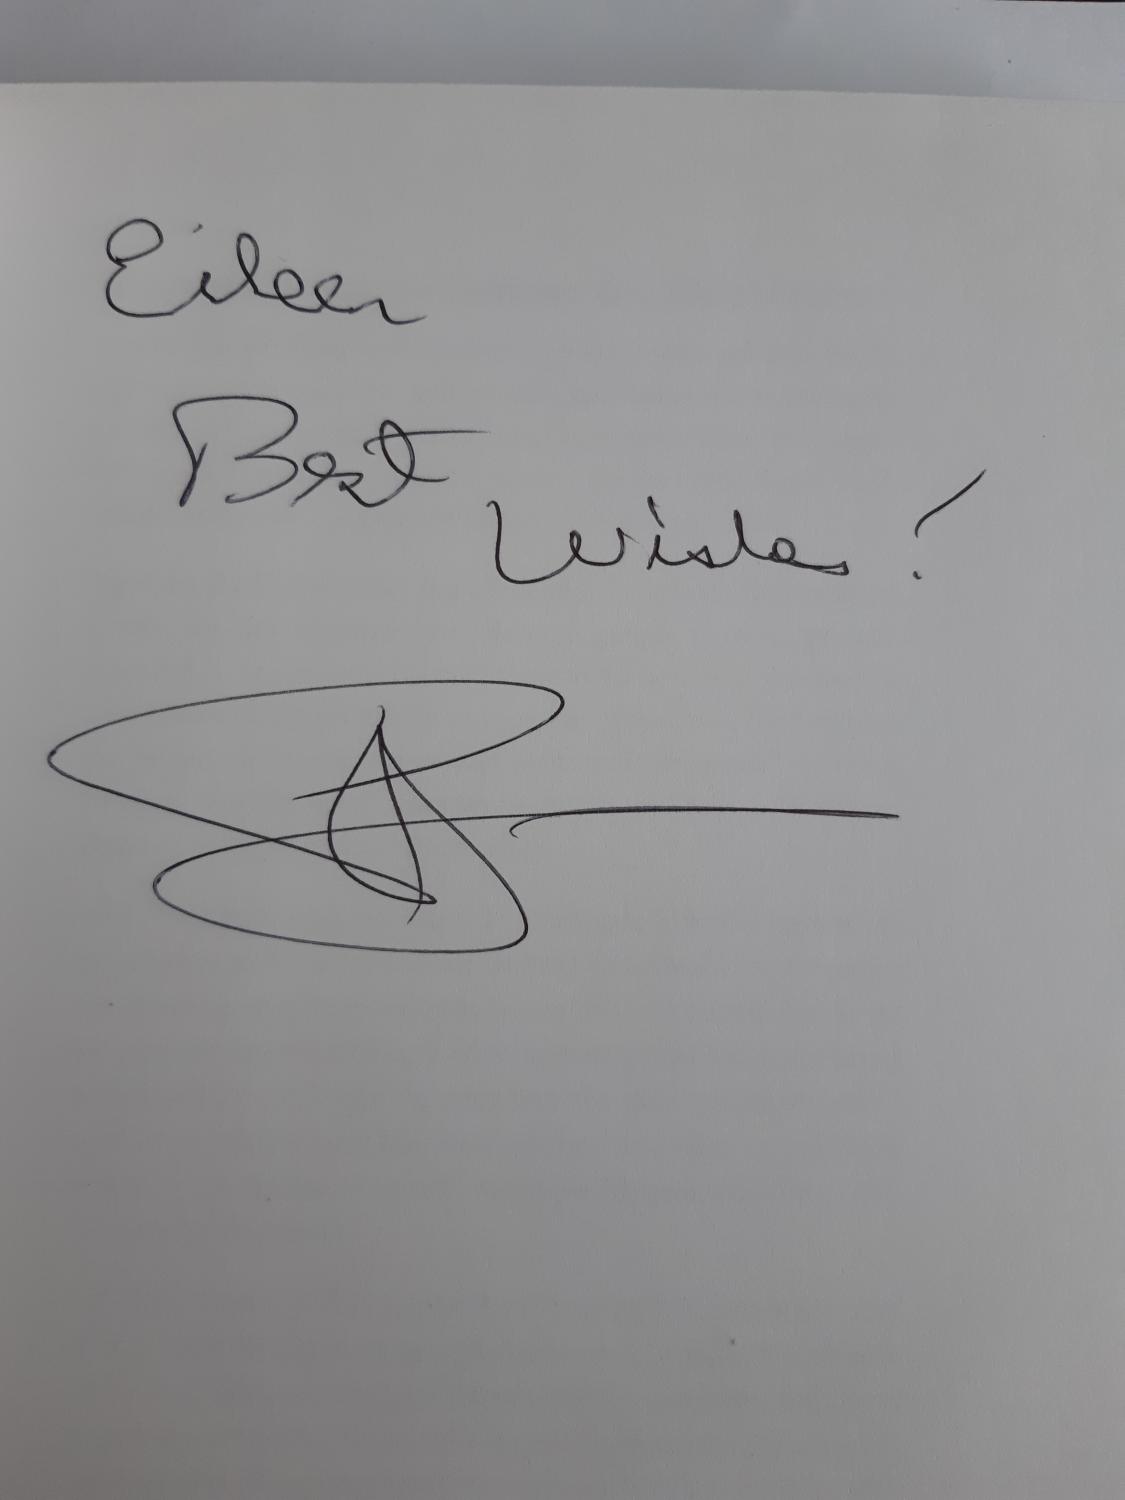 Eileen
Best
Wishes!